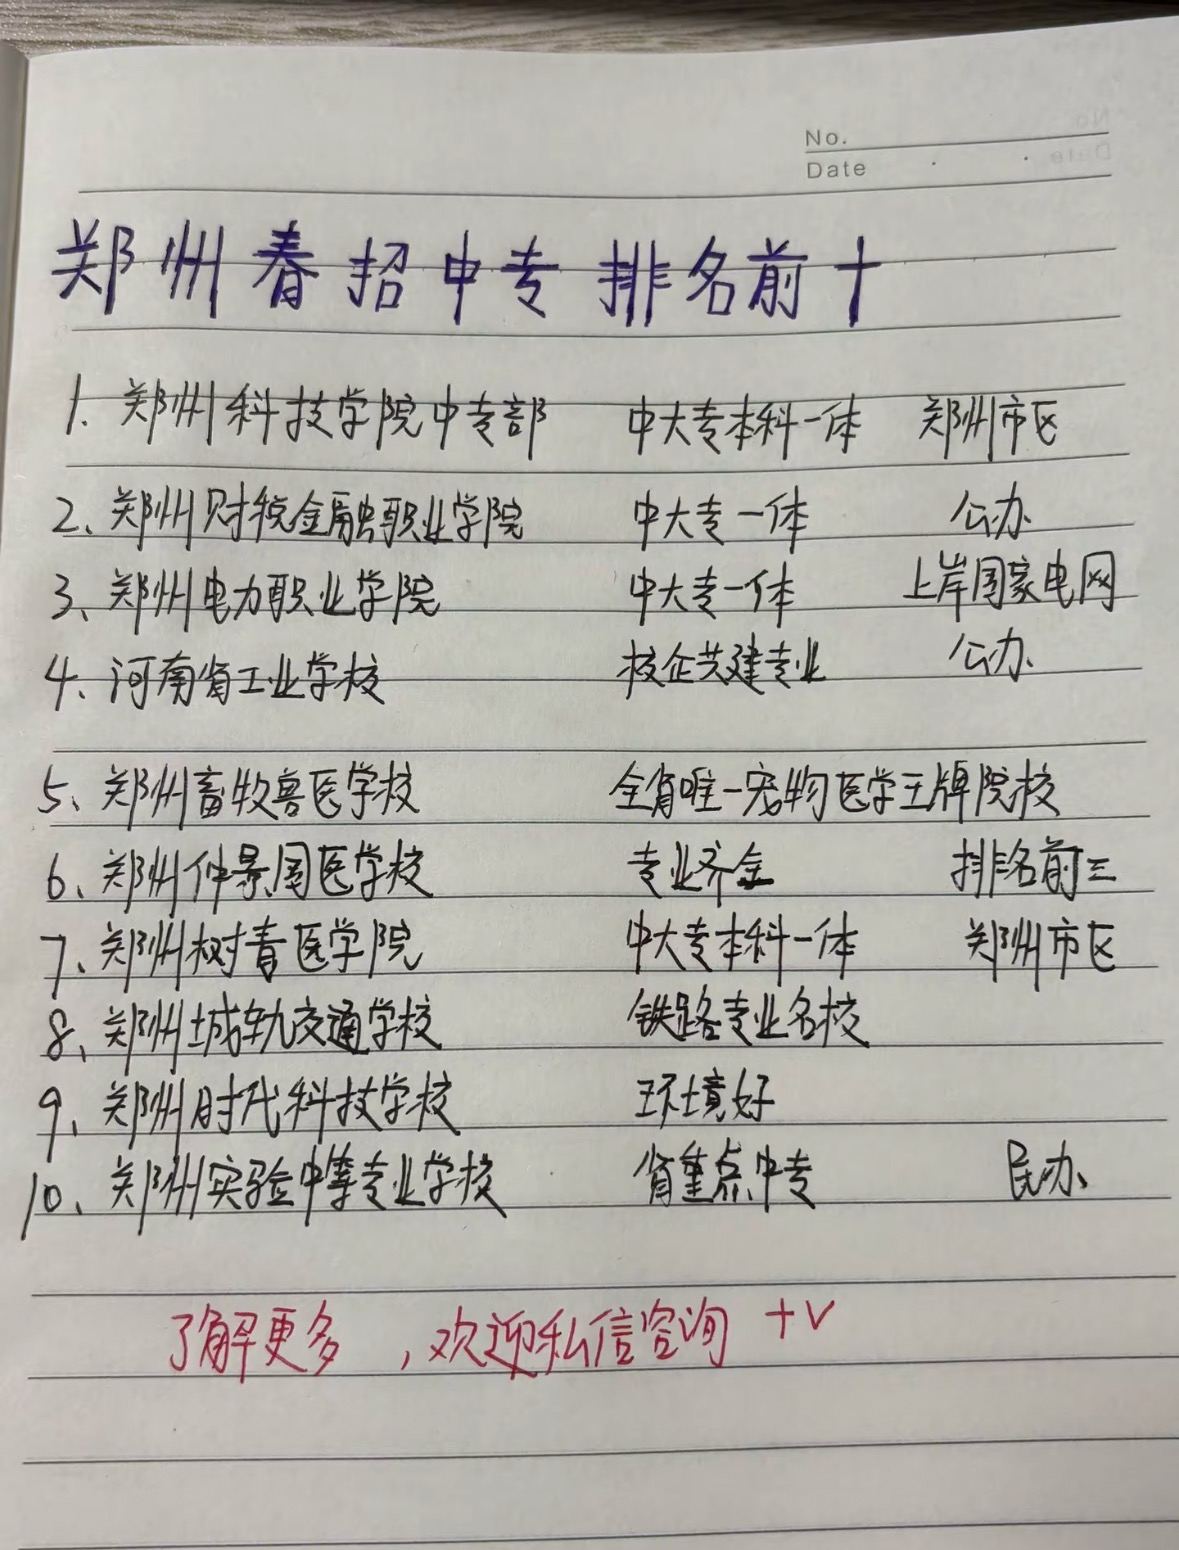 No.
Date
郑州春招中专排名前十
1. 郑州科技学院中专部 中大专本科一体 郑州市区
2、郑州财税金融职业学院 中大专一体 公办
3、郑州电力职业学院 中大专一体 上岸国家电网
4、河南省工业学校 校企共建专业 公办
5、郑州畜牧兽医学校 全省唯一宠物医学王牌院校
6、郑州仲景国医学校 专业齐全 排名前三
7、郑州树青医学院 中大专本科一体 郑州市区
8、郑州城轨交通学校 铁路专业名校
9、郑州时代科技学校 环境好
10、郑州实验中等专业学校 省重点中专 民办
了解更多，欢迎私信咨询 +V